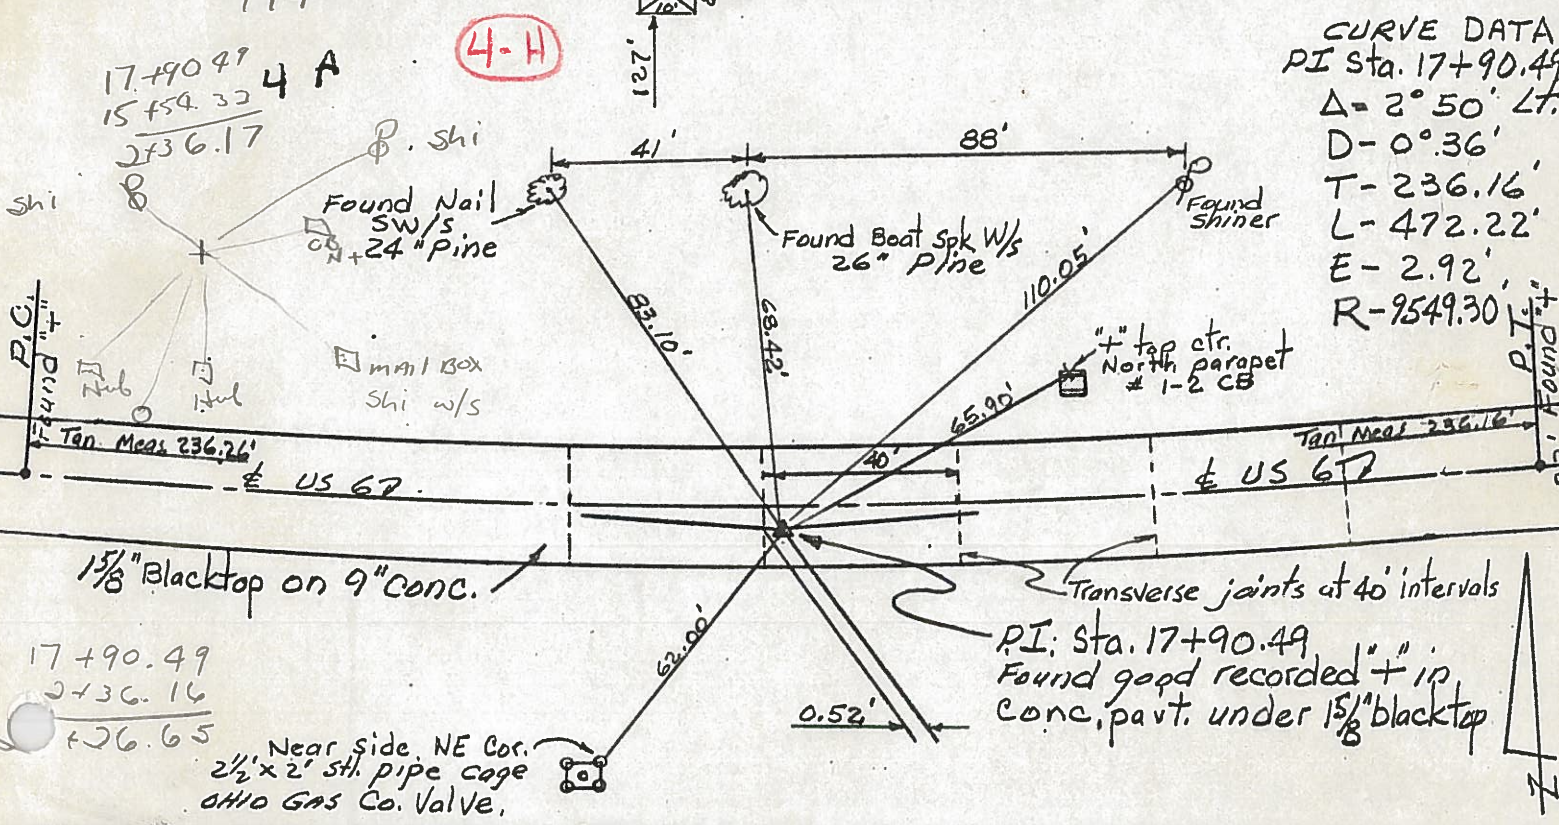 4-H
10'
127'
17+90.49
15+54.32
2+36.17
4 A
shi
shi
CB
Hub
Hub
mail BOX
Shi w/s
CURVE DATA
PI Sta. 17+90.49
Δ= 2° 50' Lt.
D- 0°.36'
T- 236.16'
L- 472.22'
E- 2.92'
R-9549.30'
41'
88'
Found Nail
SW/s
24" Pine
Found Boat Spk W/s
26" Pine
Found
Shiner
83.10'
68.42'
110.05'
65.90'
"+" top ctr.
North parapet
# 1-2 CB
P.C.
Found "+"
P.T.
Found "+"
Tan. Meas 236.26'
Tan Meas 236.16'
40'
℄ US 6
℄ US 6
1 5/8" Blacktop on 9" Conc.
Transverse joints at 40' intervals
P.I. Sta. 17+90.49
Found good recorded "+" in
Conc. pavt. under 1 5/8" blacktop
62.00'
0.52'
17+90.49
2+36.16
+26.65
Near side NE Cor.
2½' x 2' stl. pipe cage
OHIO GAS Co. Valve.
N